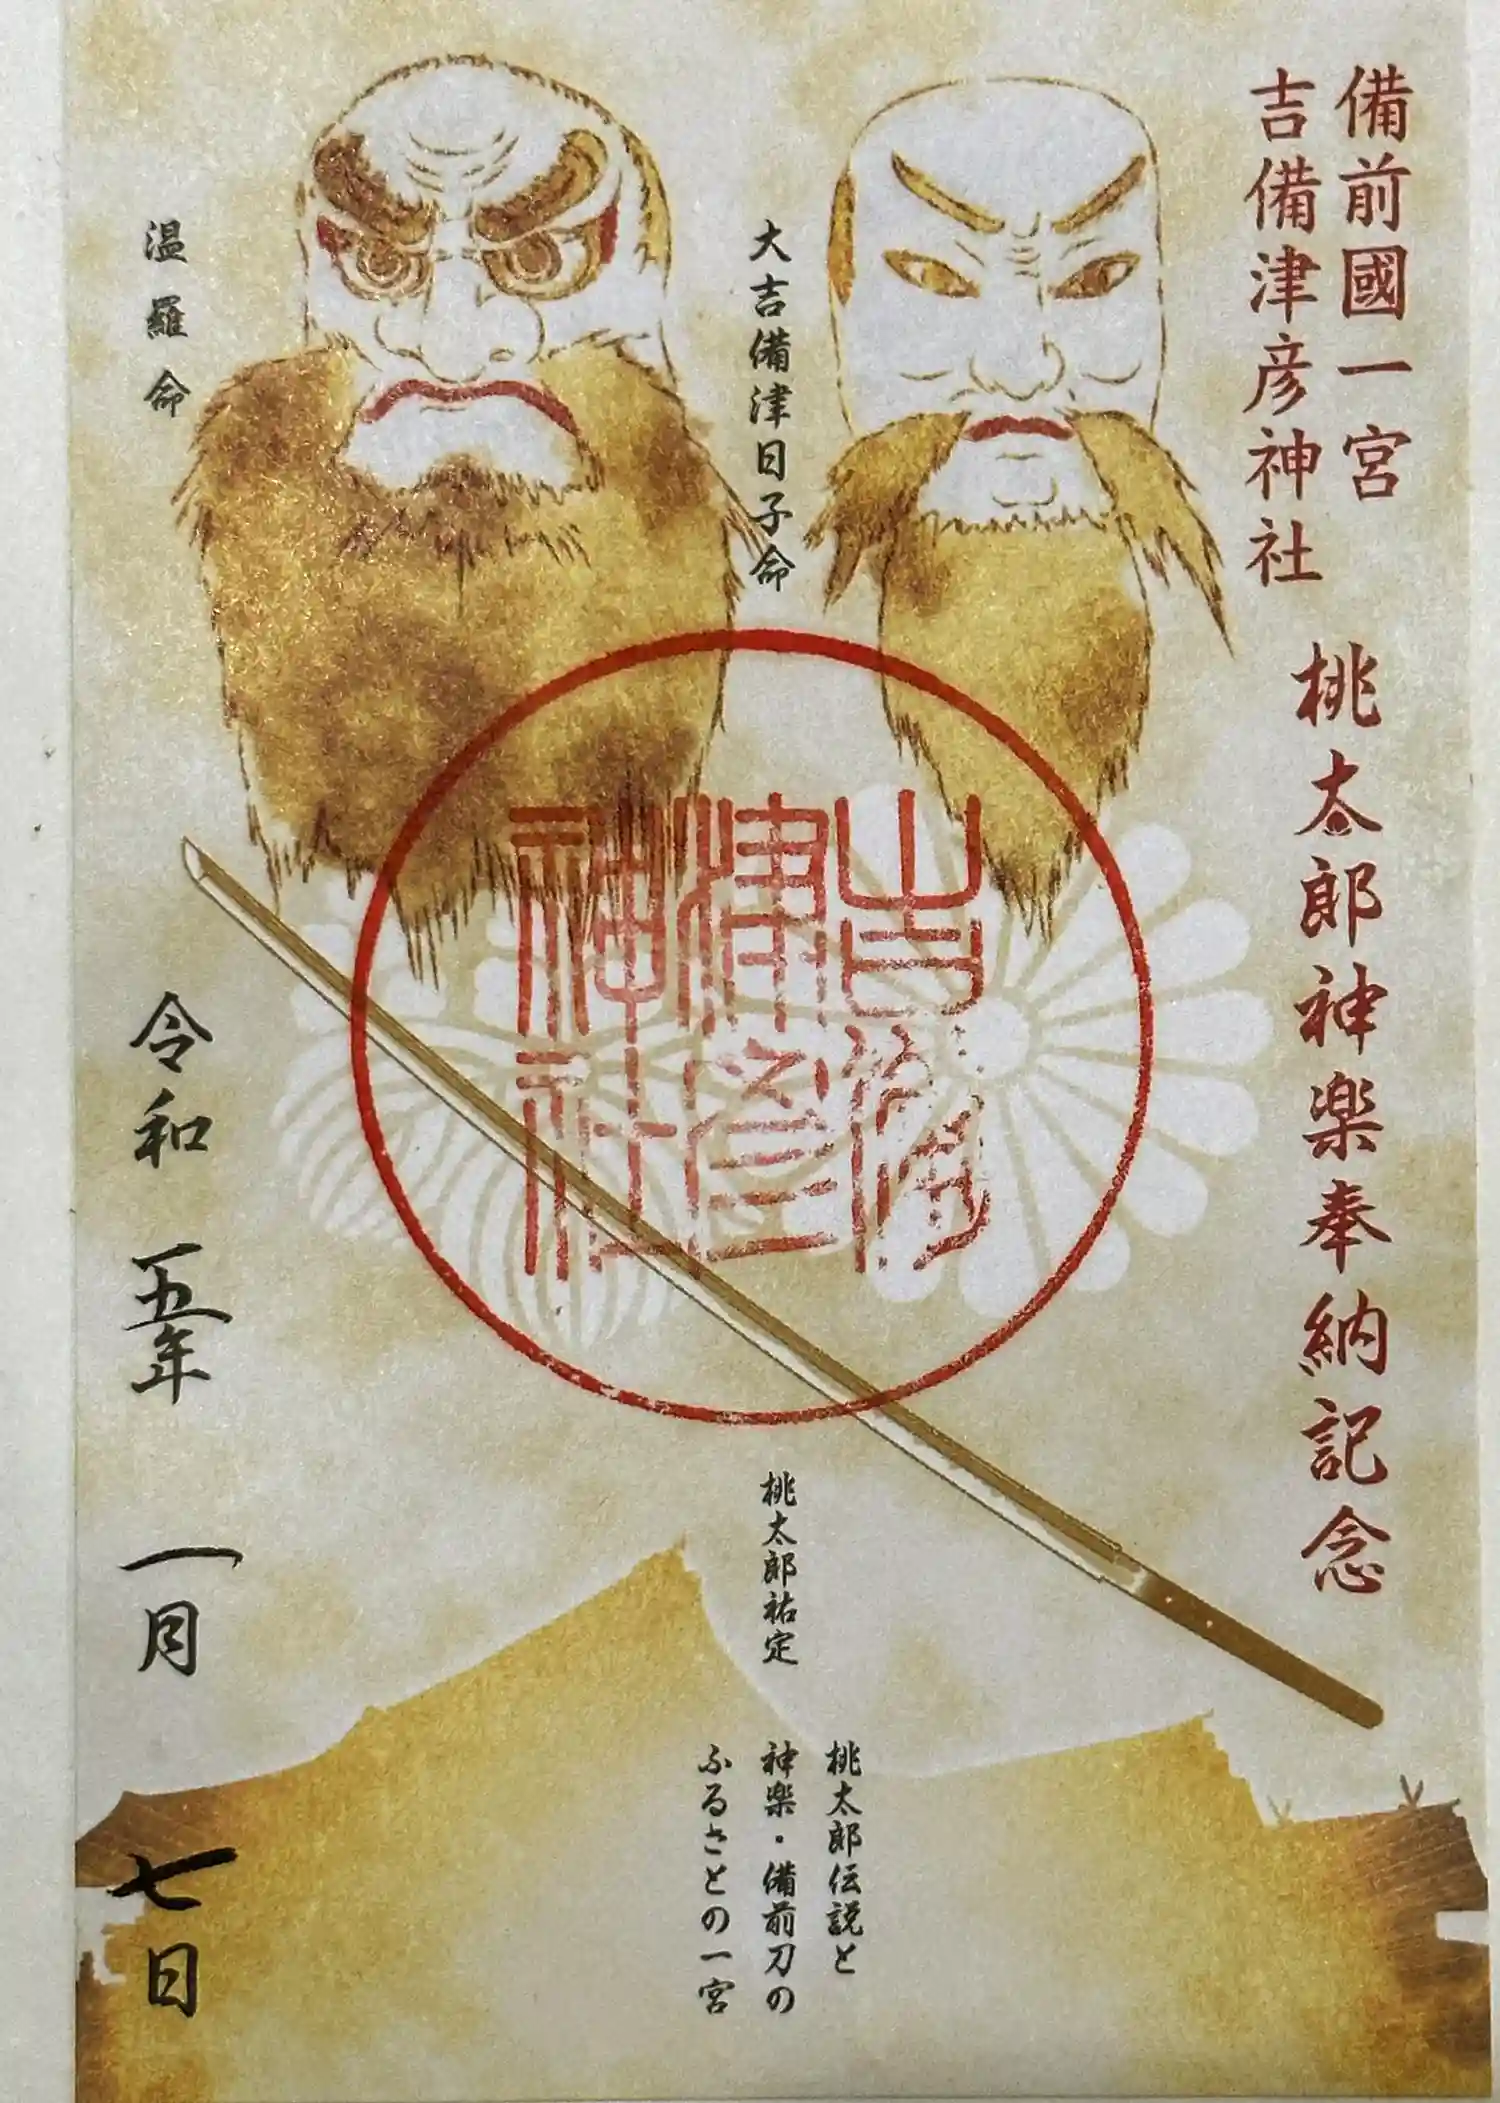 備前國一宮
吉備津彦神社
桃太郎神楽奉納記念
大吉備津日子命
温羅命
吉備
津彦
神社
令和五年一月七日
桃太郎祐定
桃太郎伝説と
神楽・備前刀の
ふるさとの一宮